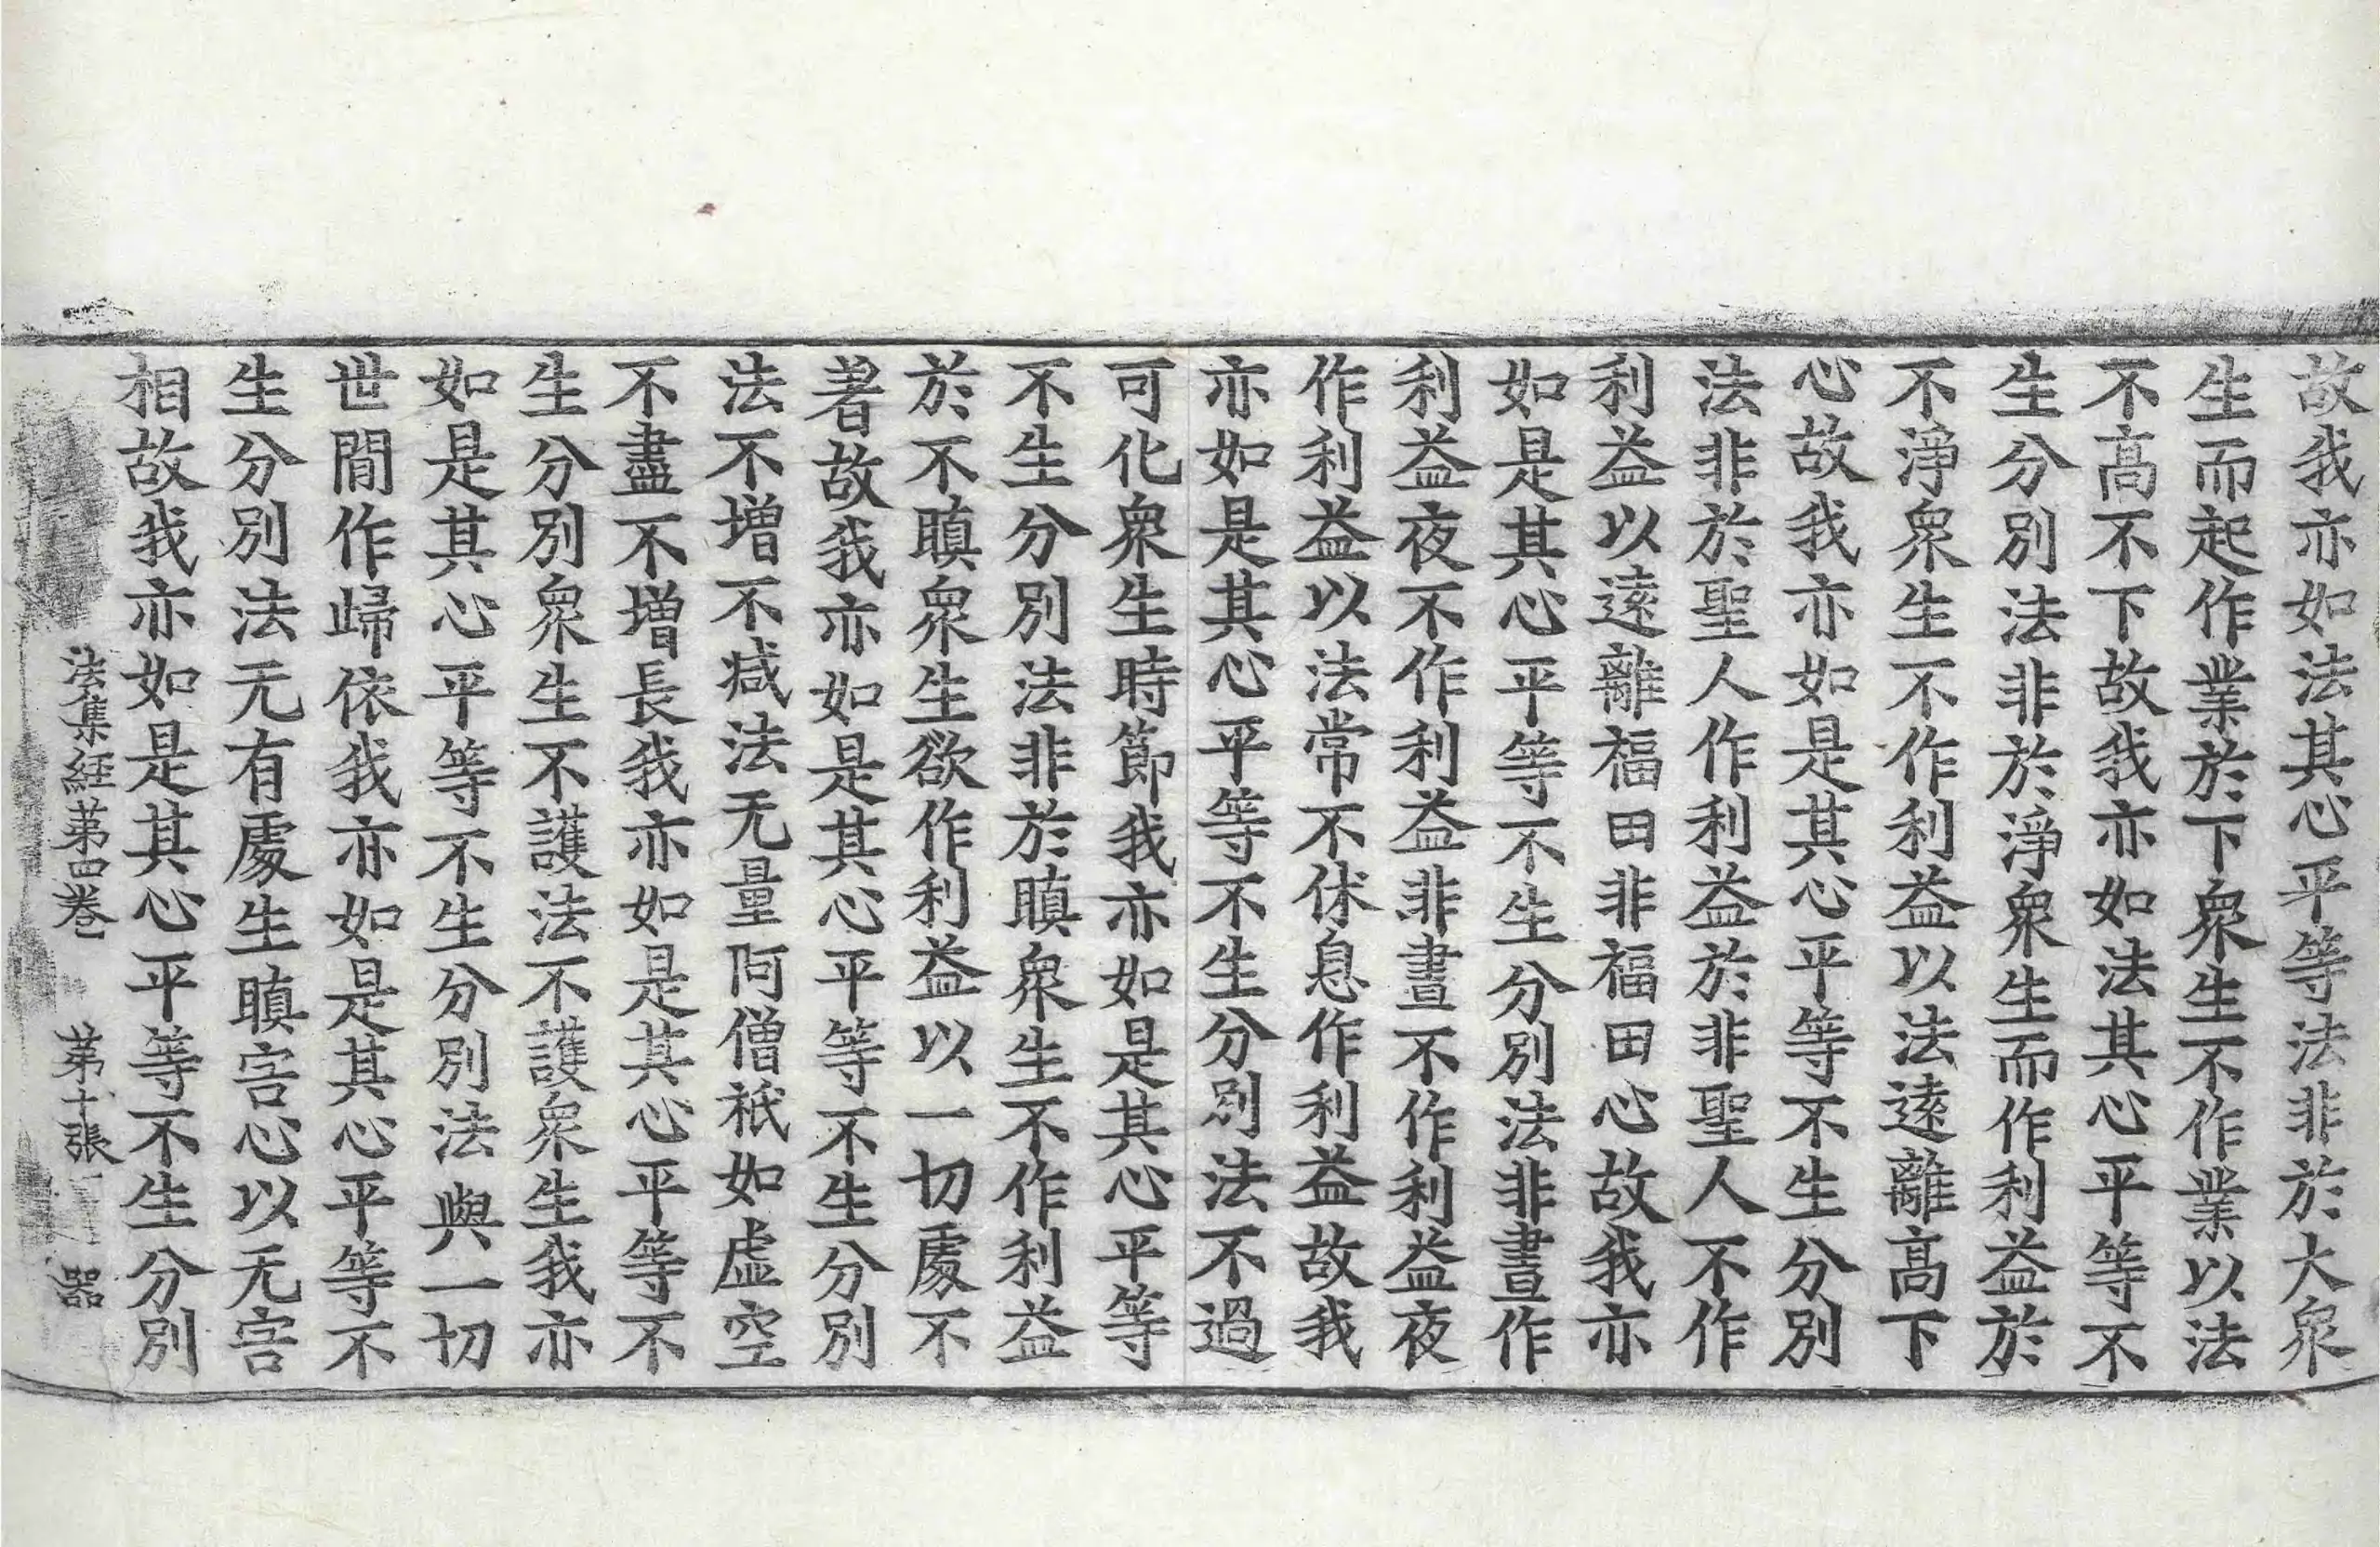 故我亦如法其心平等法非於大衆
生而起作業於下衆生不作業以法
不高不下故我亦如法其心平等不
生分別法非於淨衆生而作利益於
不淨衆生不作利益以法遠離高下
心故我亦如是其心平等不生分別
法非於聖人作利益於非聖人不作
利益以遠離福田非福田心故我亦
如是其心平等不生分別法非晝作
利益夜不作利益非晝不作利益夜
作利益以法常不休息作利益故我
亦如是其心平等不生分別法不過
可化衆生時節我亦如是其心平等
不生分別法非於瞋衆生不作利益
於不瞋衆生欲作利益以一切處不
著故我亦如是其心平等不生分別
法不增不減法无量阿僧祇如虛空
不盡不增長我亦如是其心平等不
生分別衆生不護法不護衆生我亦
如是其心平等不生分別法與一切
世間作歸依我亦如是其心平等不
生分別法无有處生瞋害心以无害
相故我亦如是其心平等不生分別
法集經第四卷 第十張 器